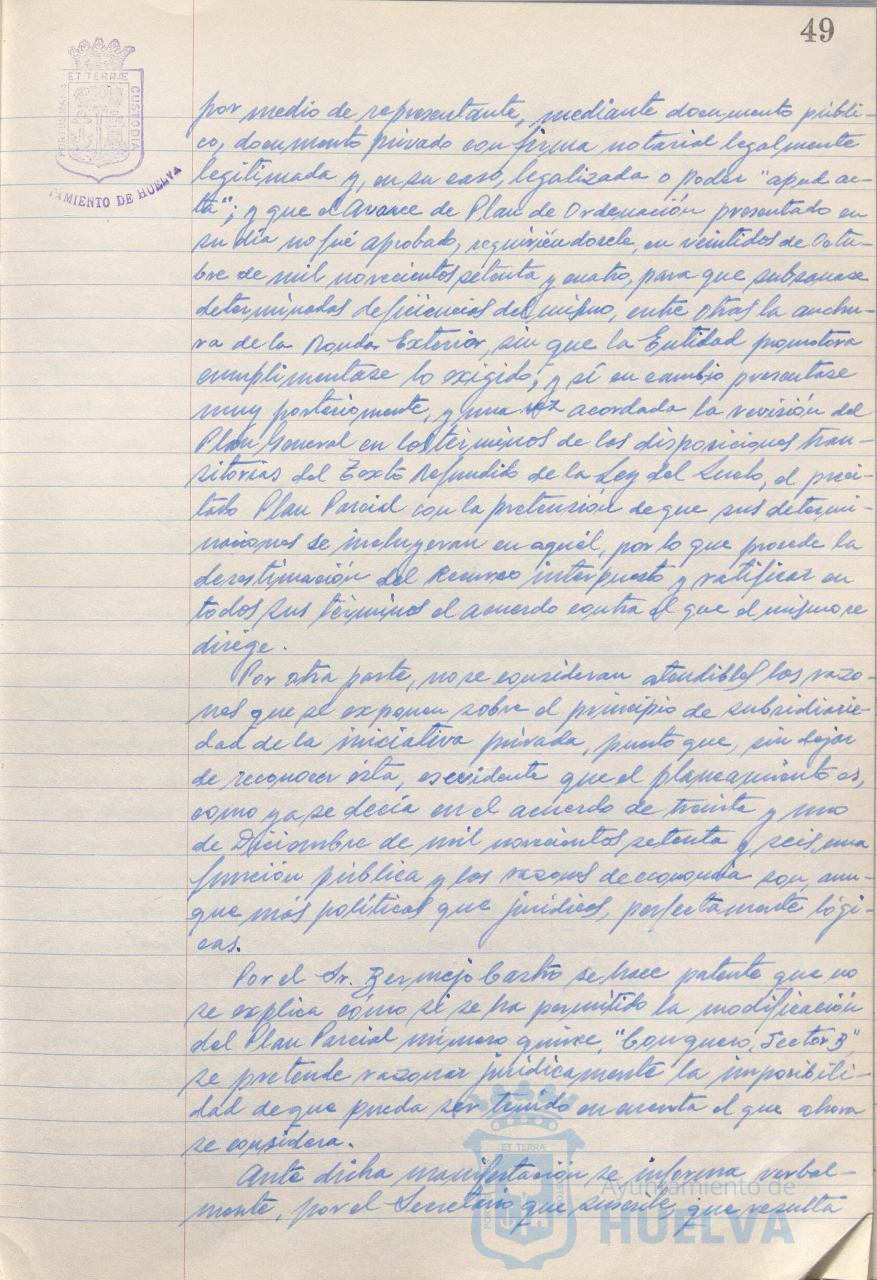 49
ET TERRÆ
PORTUS MARIS
CUSTODIA
TAMIENTO DE HUELVA
por medio de representante, mediante documento públi-
co, documento privado con firma notarial legalmente
legitimada y, en su caso, legalizada o poder "apud ac-
ta"; y que el Avance de Plan de Ordenación presentado en
su día no fué aprobado, requiriéndosele, en veintidos de Octu-
bre de mil novecientos setenta y cuatro, para que subsanase
determinadas deficiencias del mismo, entre otras la anchu-
ra de la Ronda Exterior, sin que la Entidad promotora
cumplimentase lo exigido, y sí en cambio presentase
muy posteriormente, y una vez acordada la revisión del
Plan General en los términos de las disposiciones tran-
sitorias del Texto Refundido de la Ley del Suelo, el preci-
tado Plan Parcial con la pretensión de que sus determi-
naciones se incluyeran en aquél, por lo que procede la
desestimación del Recurso interpuesto y ratificar en
todos sus términos el acuerdo contra el que el mismo se
dirige.
Por otra parte, no se consideran atendibles las razo-
nes que se exponen sobre el principio de subsidiarie-
dad de la iniciativa privada, puesto que, sin dejar
de reconocer ésta, es evidente que el planeamiento es,
como ya se decía en el acuerdo de treinta y uno
de Diciembre de mil novecientos setenta y seis, una
función pública y las razones de economía son, aun-
que más políticas que jurídicas, perfectamente lógi-
cas.
Por el Sr. Bermejo Castro se hace patente que no
se explica cómo si se ha permitido la modificación
del Plan Parcial número quince, "Conquero, Sector B",
se pretende razonar jurídicamente la imposibili-
dad de que pueda ser tenido en cuenta el que ahora
se considera.
Ante dicha manifestación se informa verbal-
mente, por el Secretario que suscribe, que resulta
ET TERRÆ
Ayuntamiento de
HUELVA